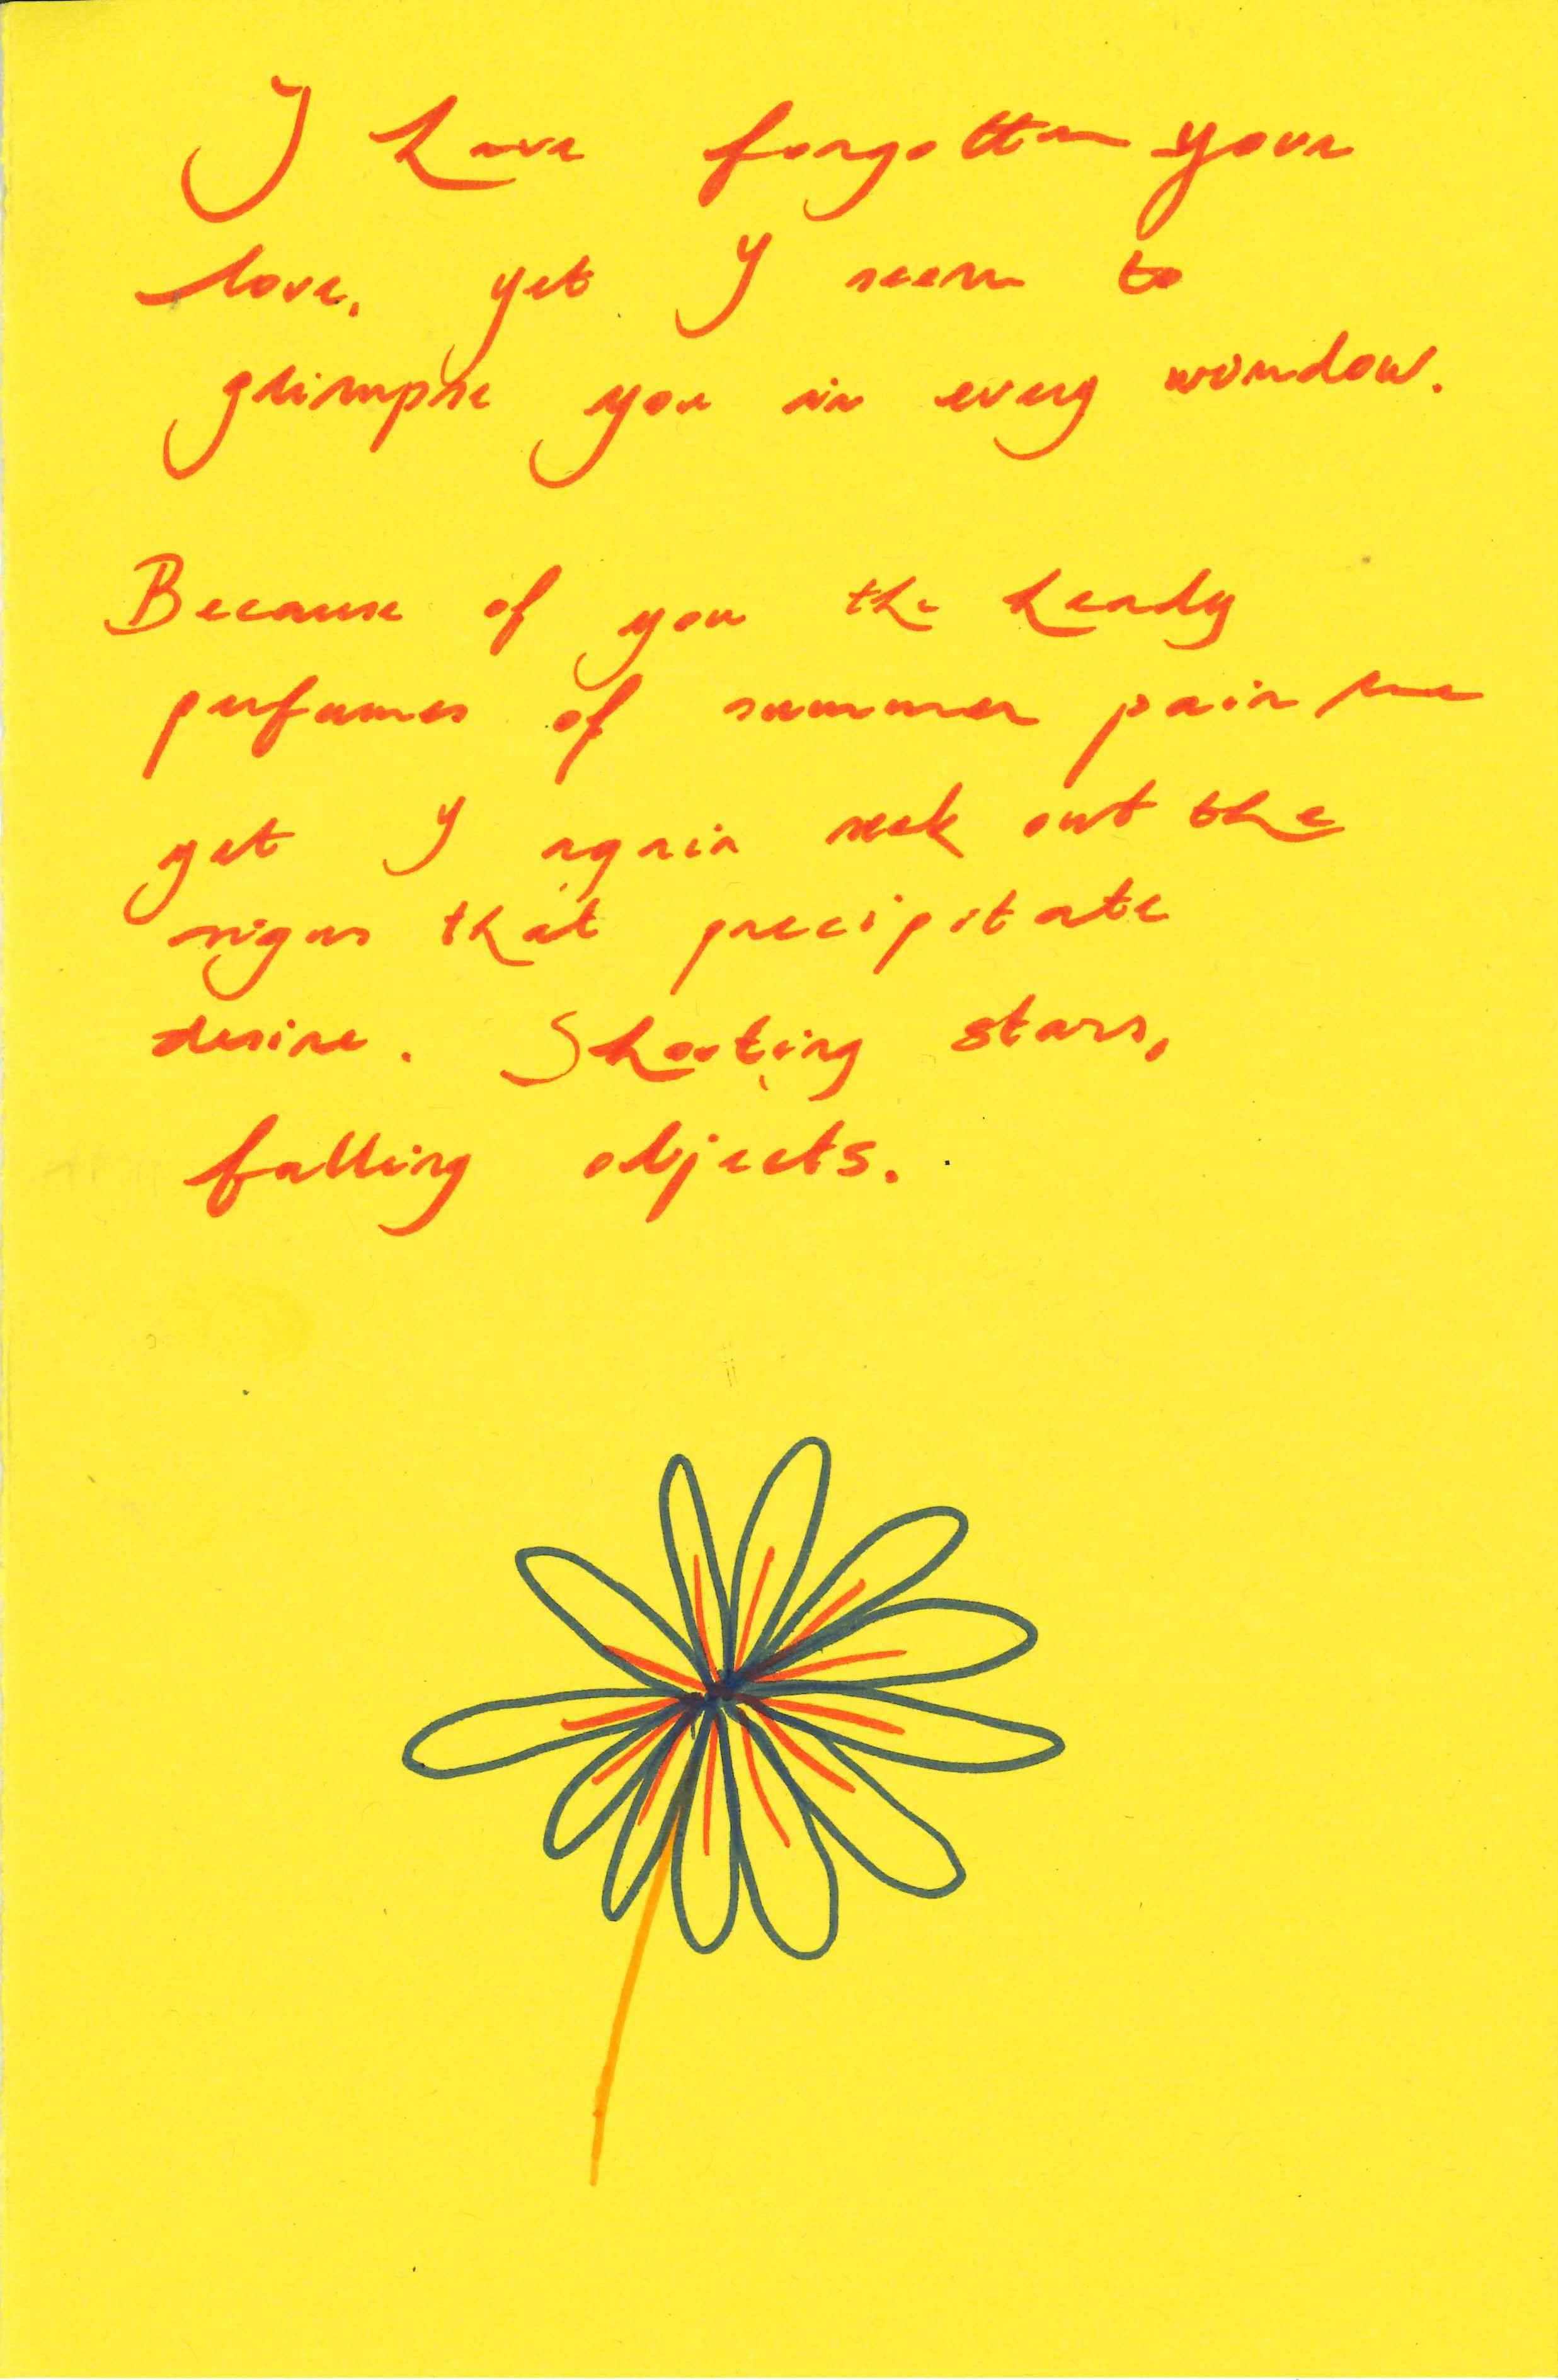 I have forgotten your
love, yet I seem to
glimpse you in every window.
Because of you the heady
perfumes of summer pain me
yet I again seek out the
signs that precipitate
desire. Shooting stars,
falling objects.